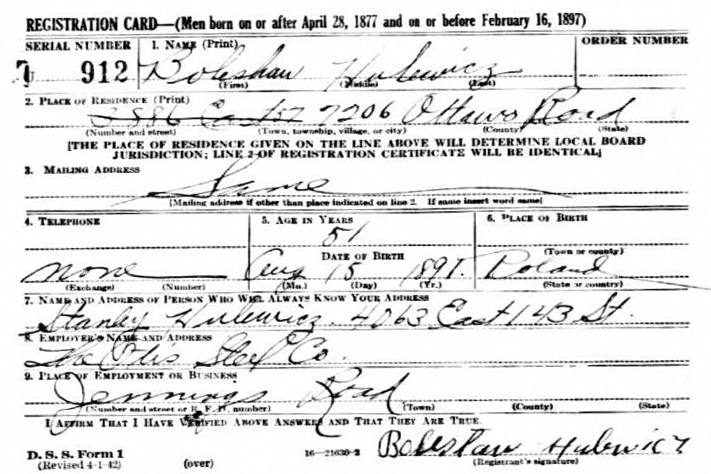 REGISTRATION CARD—(Men born on or after April 28, 1877 and on or before February 16, 1897)
SERIAL NUMBER
1. NAME (Print)
ORDER NUMBER
912
Boleslaw Hulewicz
(First) (Middle) (Last)
2. PLACE OF RESIDENCE (Print)
3886 East 57 7206 Ottawa Road
(Number and street) (Town, township, village, or city) (County) (State)
[THE PLACE OF RESIDENCE GIVEN ON THE LINE ABOVE WILL DETERMINE LOCAL BOARD
JURISDICTION; LINE 2 OF REGISTRATION CERTIFICATE WILL BE IDENTICAL]
3. MAILING ADDRESS
Same
[Mailing address if other than place indicated on line 2. If same insert word same]
4. TELEPHONE
5. AGE IN YEARS
6. PLACE OF BIRTH
51
(Town or county)
DATE OF BIRTH
none Aug 15 1891. Poland
(Exchange) (Number) (Mo.) (Day) (Yr.) (State or country)
7. NAME AND ADDRESS OF PERSON WHO WILL ALWAYS KNOW YOUR ADDRESS
Stanley Hulewicz. 4063 East 143 St.
8. EMPLOYER'S NAME AND ADDRESS
The Otis Steel Co.
9. PLACE OF EMPLOYMENT OR BUSINESS
Jennings Road
(Number and street or R. F. D. number) (Town) (County) (State)
I AFFIRM THAT I HAVE VERIFIED ABOVE ANSWERS AND THAT THEY ARE TRUE.
D. S. S. Form 1
(Revised 4-1-42) (over)
16—21630-2
Boleslaw Hulewicz
(Registrant's signature)